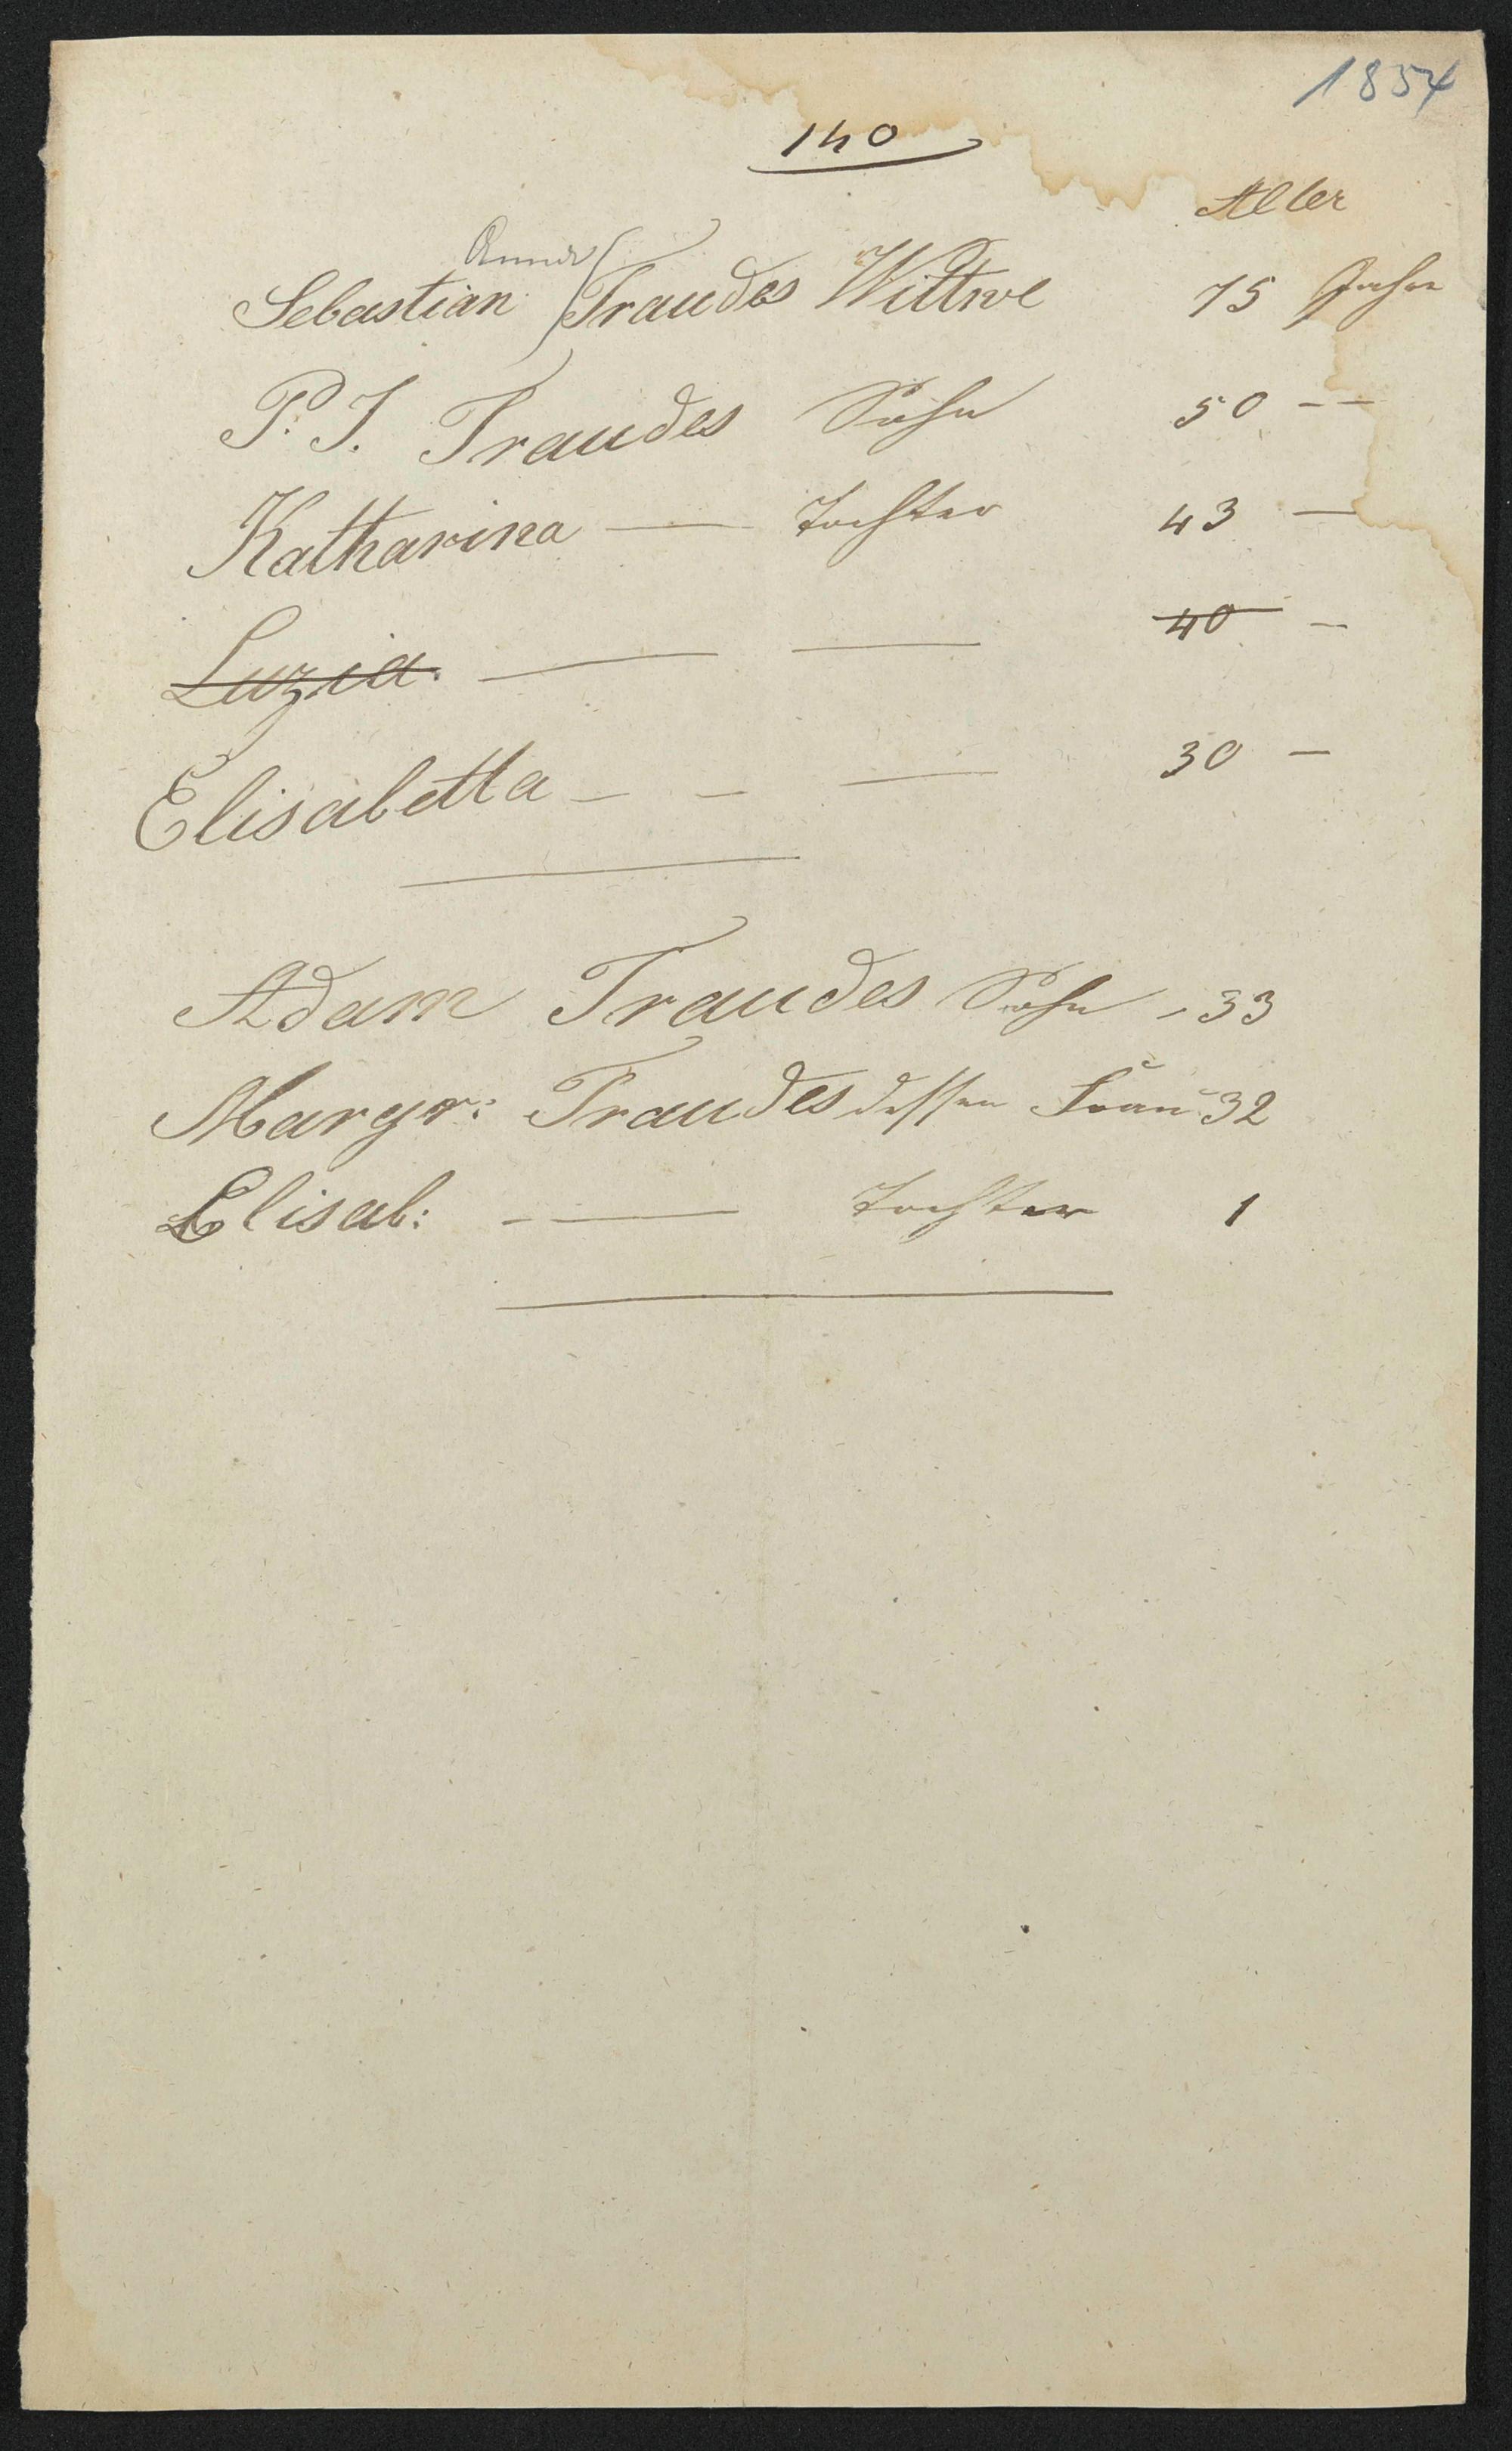 1854
140
Alter
Anna
Sebastian Traudes Wittwe 75 Jahre
P. J. Traudes Sohn 50 — —
Katharina — Tochter 43 —
Luzia. — — 40 —
Elisabetta — — — 30 —
Adam Traudes Sohn - 33
Margr: Traudes dessen Frau 32
Elisab: - — Tochter 1